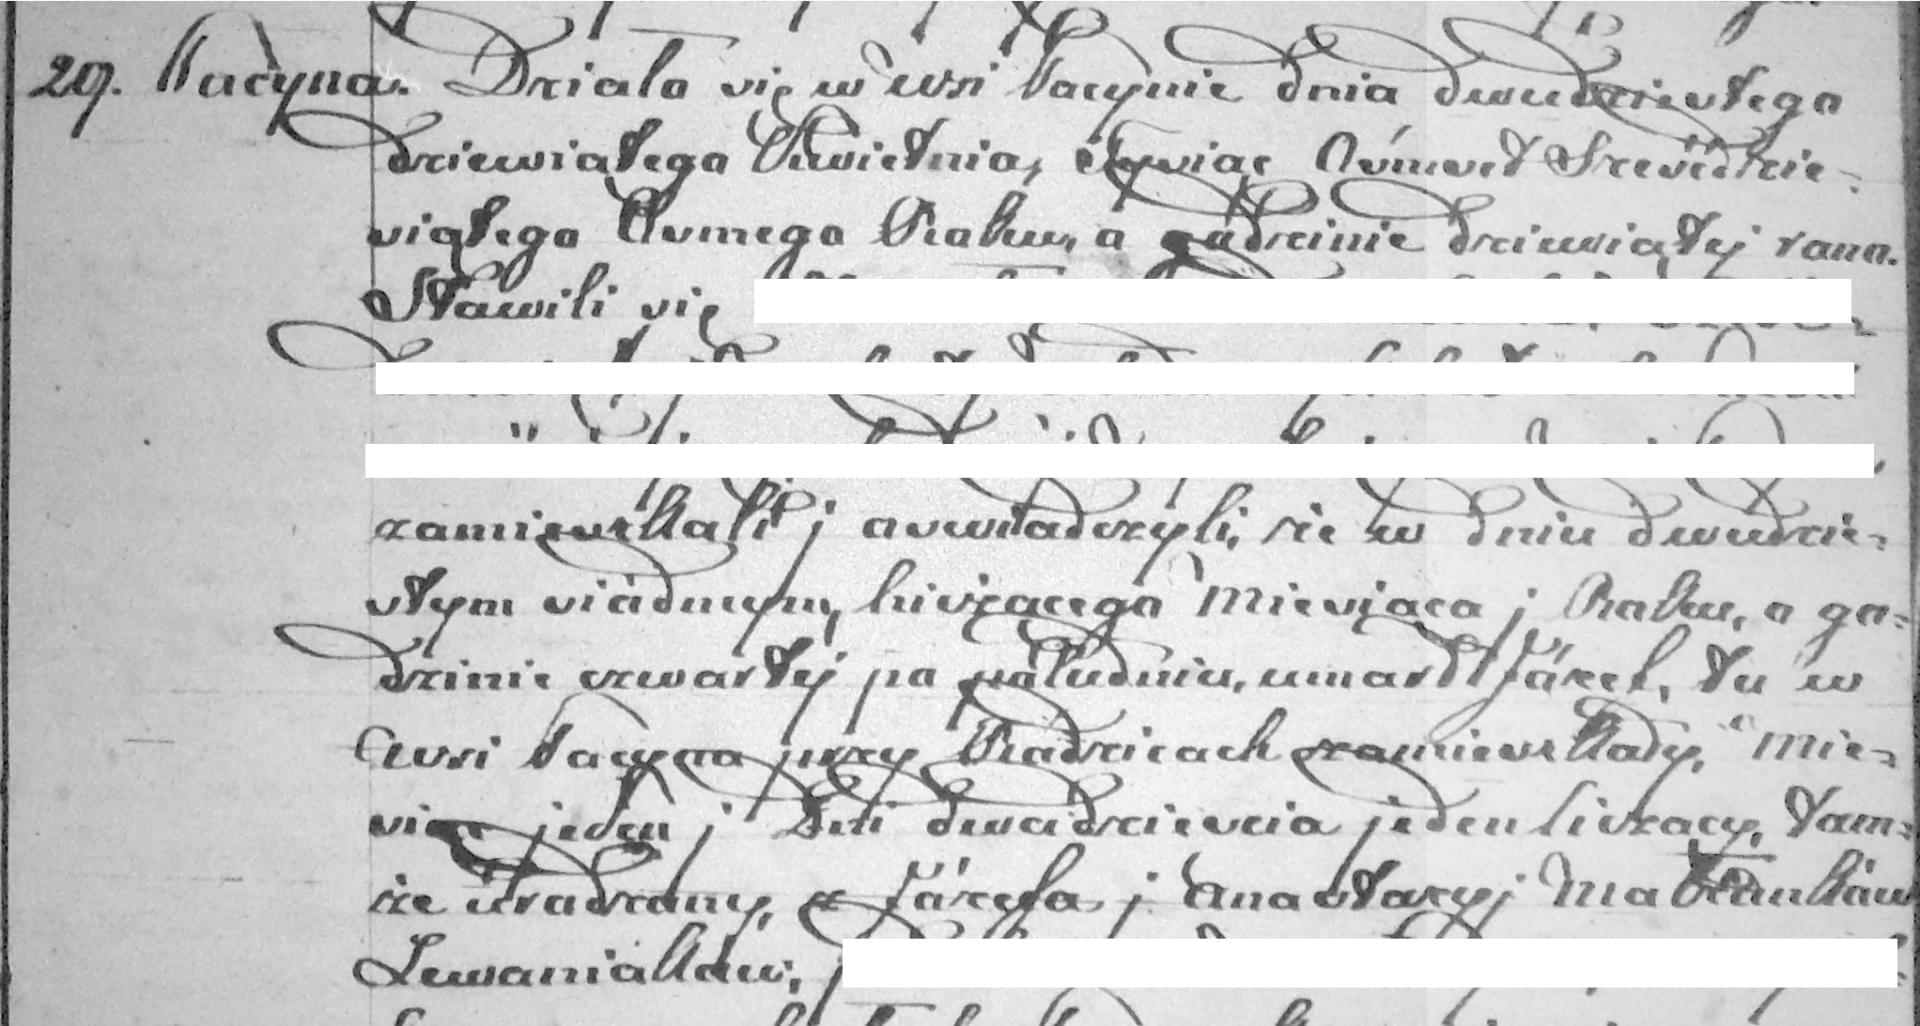 29. Kacyna. Działo się w wsi Kacynie dnia dwudziestego
dziewiątego Kwietnia, Tysiąc Ośmset Sześćdzie-
siątego Ósmego Roku, o godzinie dziewiątej rano.
Stawili się
zamieszkali j oswiadczyli, że w dniu dwudzie-
stym siódmym, bieżącego Miesiąca j Roku, o go-
dzinie czwartej po południu, umarł Józef, tu w
wsi Kacyna przy Rodzicach zamieszkały, Mie-
siąc jeden j Dni dwadzieścia jeden liczący, Tam-
że urodzony, z Józefa j Anastazyj Małżonków
Lewaniaków,